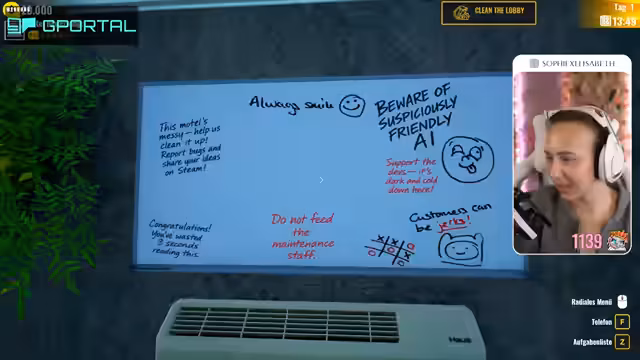 GPORTAL
CLEAN THE LOBBY
Tag 1
13:49
SOPHIEXELISABETH
Always smile
BEWARE OF
SUSPICIOUSLY
FRIENDLY
AI
This motel's
messy – help us
clean it up!
Report bugs and
share your ideas
on Steam!
Support the
devs – it's
dark and cold
down here!
Congratulations!
You've wasted
seconds
reading this.
Do not feed
the
maintenance
staff.
Customers can
be jerks!
X X O
O O X
O
1139
Haus
Radiales Menü
Telefon F
Aufgabenliste Z